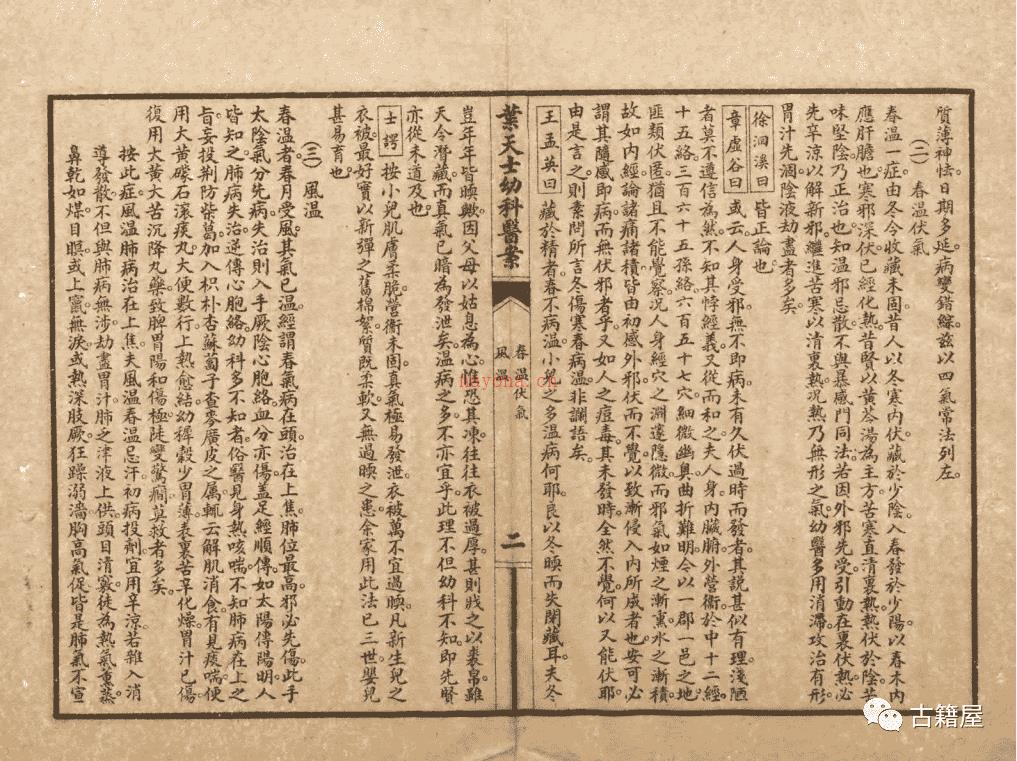 質薄神怯日期多延病變錯綜茲以四氣常法列左
(二) 春溫伏氣
春溫一症由冬令收藏未固昔人以冬寒內伏藏於少陰入春發於少陽以春木內
應肝膽也寒邪深伏已經化熱昔賢以黃芩湯為主方苦寒直清裏熱熱伏於陰苦
味堅陰乃正治也知溫邪忌散不與暴感門同法若因外邪先受引動在裏伏熱必
先辛涼以解新邪繼進苦寒以清裏熱況熱乃無形之氣幼醫多用消滯攻治有形
胃汁先涸陰液劫盡者多矣
徐洄溪曰 皆正論也
章虛谷曰 或云人身受邪無不即病未有久伏過時而發者其說甚似有理淺陋
者莫不遵信為然不知其悖經義又從而和之夫人身內臟腑外營衛於中十二經
十五絡三百六十五孫絡六百五十七穴細微幽奧曲折難明今以一郡一邑之地
匪類伏匿猶且不能覺察況人身經穴之淵邃隱微而邪氣如煙之漸熏水之漸積
故如內經論諸痛諸積皆由初感外邪伏而不覺以致漸侵入內所成者也安可必
謂其隨感即病而無伏邪者乎又如人之痘毒其未發時全然不覺何以又能伏耶
由是言之則素問所言冬傷寒春病溫非讕語矣
王孟英曰 藏於精者春不病溫小兒之多溫病何耶良以冬暖而失閉藏耳夫冬
葉天士幼科醫案
春溫伏氣
風溫
二
豈年年皆暖歟因父母以姑息為心惟恐其凍往往衣被過厚甚則戕之以裘帛雖
天令潛藏而真氣已暗為發泄矣溫病之多不亦宜乎此理不但幼科不知即先賢
亦從未道及也
士諤 按小兒肌膚柔脆營衛未固真氣極易發泄衣被萬不宜過暖凡新生兒之
衣被最好實以新彈之舊棉絮質既柔軟又無過暖之患余家用此法已三世嬰兒
甚易育也
(三) 風溫
春溫者春月受風其氣已溫經謂春氣病在頭治在上焦肺位最高邪必先傷此手
太陰氣分先病失治則入手厥陰心胞絡血分亦傷蓋足經順傳如太陽傳陽明人
皆知之肺病失治逆傳心胞絡幼科多不知者俗醫見身熱咳喘不知肺病在上之
旨妄投荊防柴葛加入枳朴杏蘇蔔子查麥廣皮之屬輒云解肌消食有見痰喘便
用大黃礞石滾痰丸大便數行上熱愈結幼稺穀少胃薄表裏苦辛化燥胃汁已傷
復用大黃大苦沉降丸藥致脾胃陽和傷極陡變驚癇莫救者多矣
按此症風溫肺病治在上焦夫風溫春溫忌汗初病投劑宜用辛涼若雜入消
導發散不但與肺病無涉劫盡胃汁肺之津液上供頭目清竅徒為熱氣熏蒸
鼻乾如煤目瞑或上竄無淚或熱深肢厥狂躁溺濇胸高氣促皆是肺氣不宣
nayona.cn
古籍屋